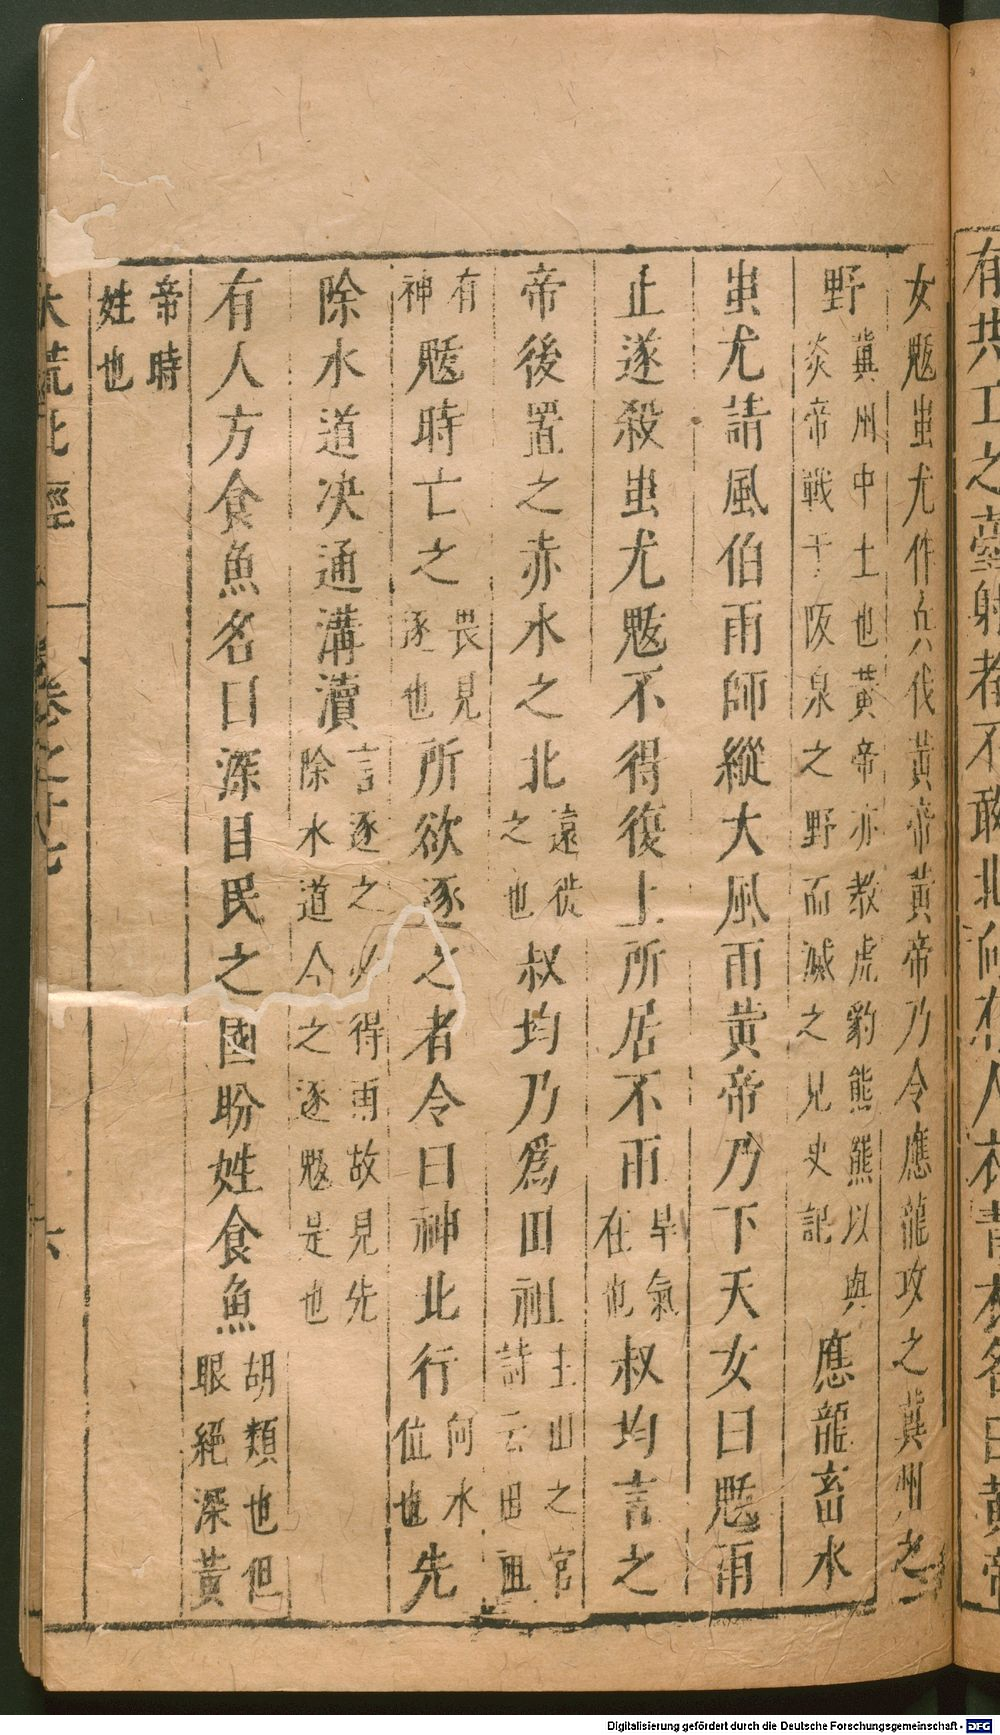 有共工之臺射者不敢北向有人衣青衣名曰黃帝
女魃蚩尤作兵伐黃帝黃帝乃令應龍攻之冀州之
野冀州中土也黃帝亦教虎豹熊羆以與炎帝戰于阪泉之野而滅之見史記應龍畜水
蚩尤請風伯雨師縱大風雨黃帝乃下天女曰魃雨
止遂殺蚩尤魃不得復上所居不雨旱氣在也叔均言之
帝後置之赤水之北遠徙之也叔均乃爲田祖主田之官詩云田祖
有神魃時亡之畏見逐也所欲逐之者令曰神北行向水位也先
除水道決通溝瀆言逐之必得雨故見先除水道今之逐魃是也
有人方食魚名曰深目民之國盼姓食魚胡類也但眼絕深黃
帝時姓也
大荒北經
卷之十七
六
Digitalisierung gefördert durch die Deutsche Forschungsgemeinschaft - DFG